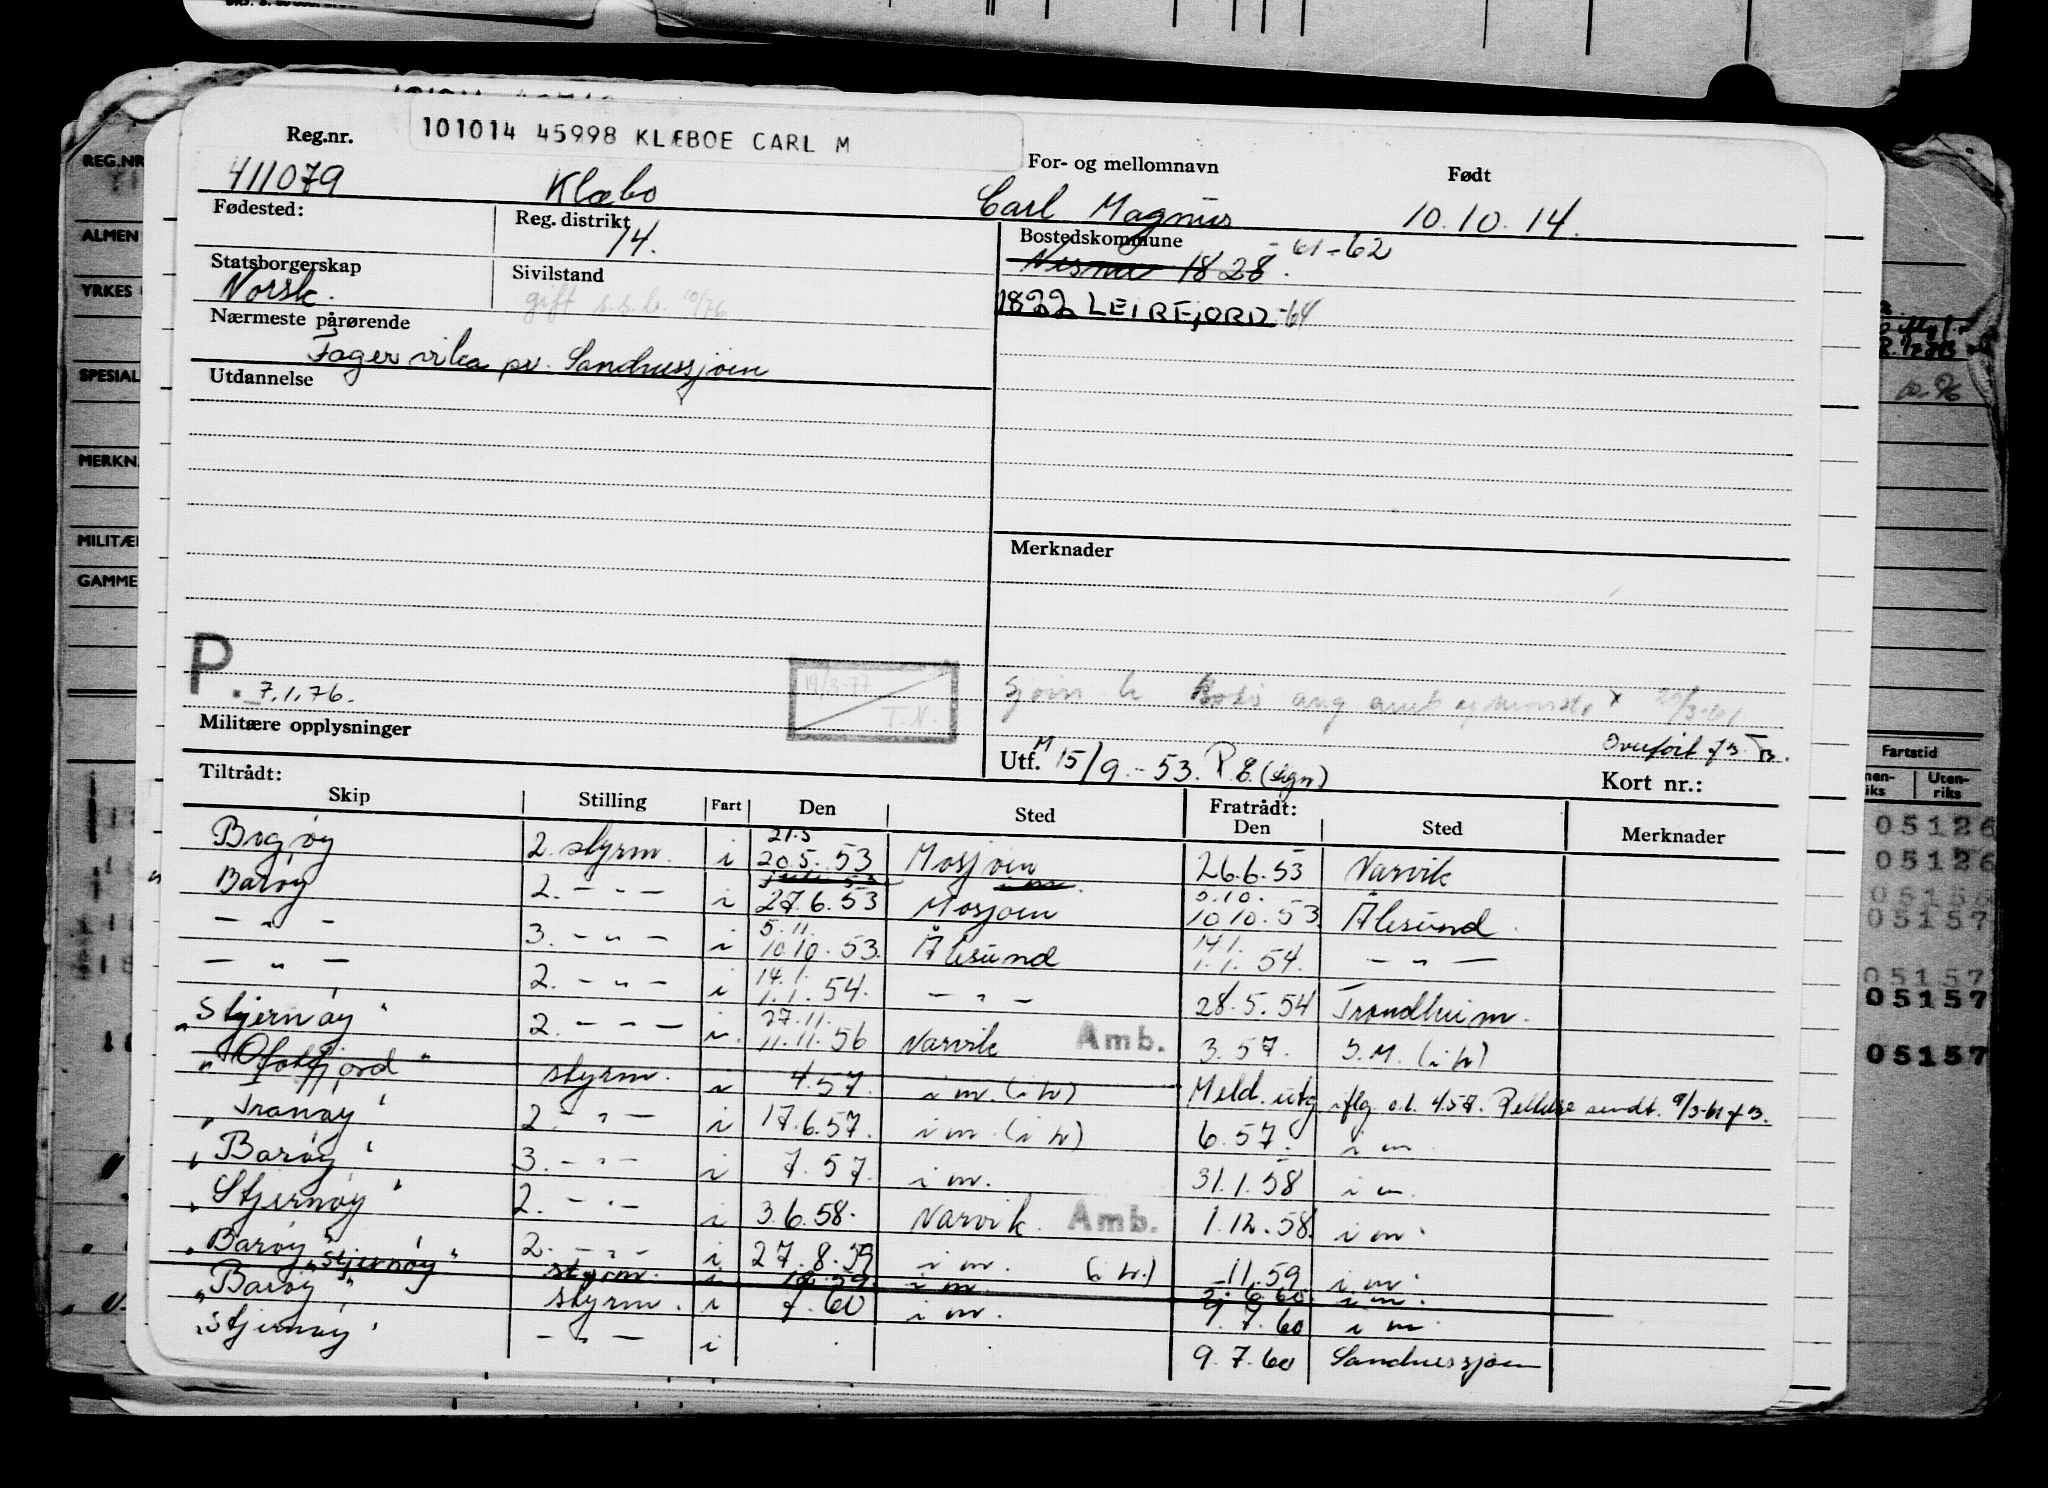 Reg.nr. 101014 45998 KLÆBOE CARL M For- og mellomnavn Født
411079 Klæbo Carl Magnus 10.10.14.
Fødested: Reg. distrikt 14. Bostedskommune
Nesna 1828. -61-62
Statsborgerskap Norsk. Sivilstand gift s.s.b. 10/76
1822 LEIRFJORD -64
Nærmeste pårørende
Fagervika pr. Sandnessjøen
Utdannelse
Merknader
P. 7.1.76.
19/3-77
T.N.
Militære opplysninger
Overført
Utf. M 15/9.-53. (sign) Kort nr.:
Tiltrådt: Fratrådt:
Skip Stilling Fart Den Sted Den Sted Merknader
Bogøy 2. styrm. i 21.5 20.5.53 Mosjøen 26.6.53 Narvik
"Barøy 2. - " - i 27.6.53 Mosjøen 5.10. 10.10.53 Ålesund
- " - 3. - " - i 5.11. 10.10.53. Ålesund 14.1. 1.1.54. - " -
- " - 2. - " - i 14.1. 1.1.54. - " - 28.5.54 Trondheim.
"Stjernøy" 2. - " - i. 27.11. 11.11.56 Narvik Amb. 3.57. I.M. (i h)
"Ofotfjord" styrm. i 4.57. i m. (i h) Meld. utg iflg. o.l. 4.57. sendt. 9/3-61
"Tranøy" 2. - " - i 17.6.57. i m. (i h) 6.57. i m.
"Barøy" 3. - " - i 7.57. i m. 31.1.58 i m.
"Stjernøy" 2. - " - i 3.6.58. Narvik. Amb. 1.12.58. i m.
"Barøy" 2. - " - i 27.8.59 i m. (i h.) 11.59. i m.
"Stjernøy" styrm. i i m. 2.6.60. i m.
"Barøy" styrm. i 7.60 i m. 7.7.60 i m.
"Stjernøy" - " - i 9.7.60 Sandnessjøen
REG.NR
ALMEN
YRKES
SPESIAL
MERKN
MILITÆ
GAMME
Fartstid
Uten-
riks
05126
05126
05156
05157
05157
05157
05157